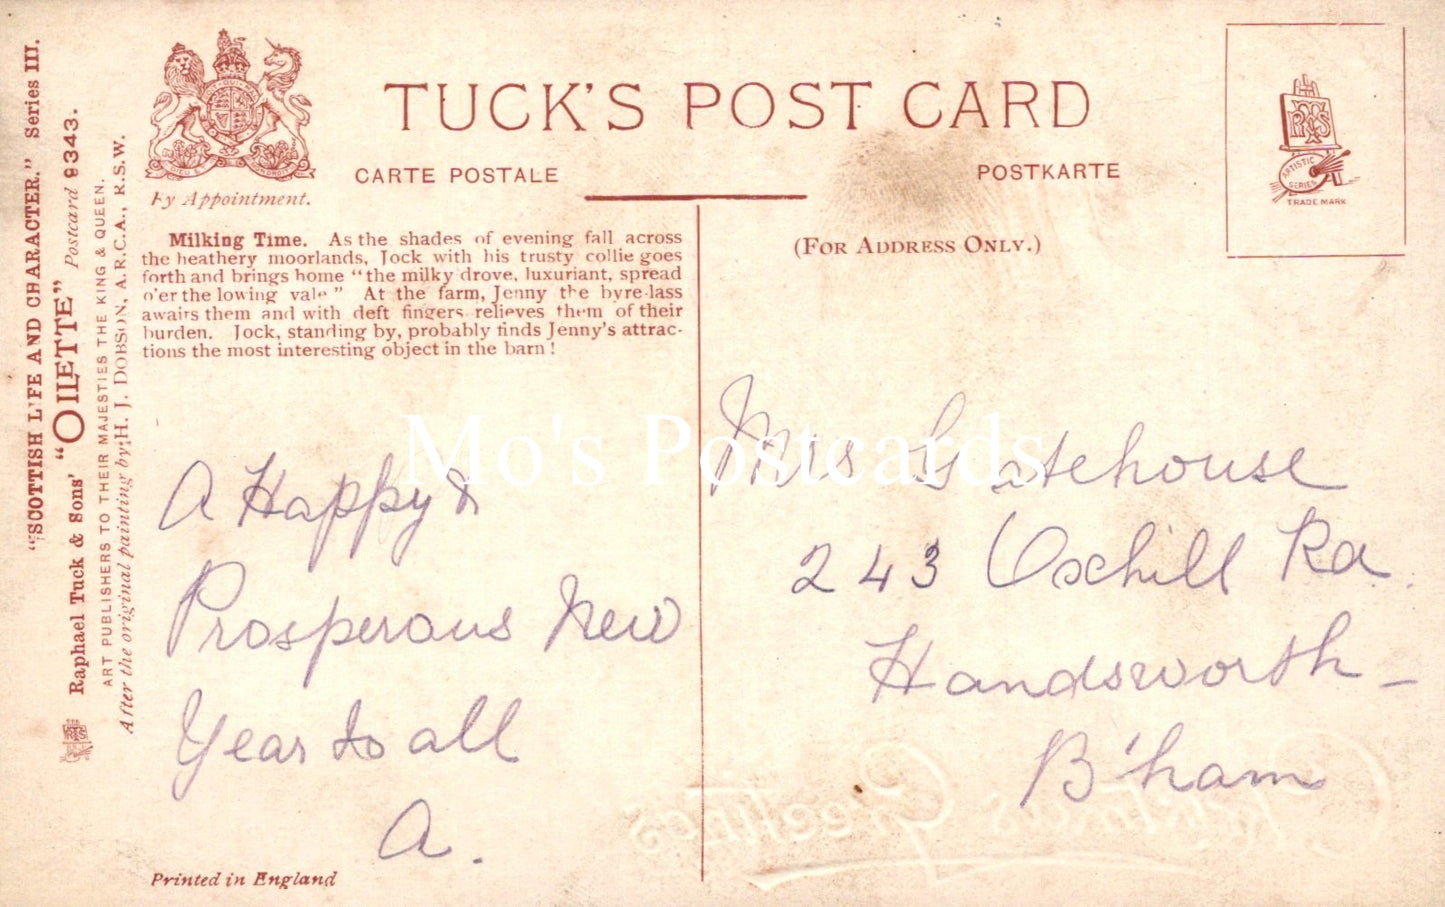 "SCOTTISH LIFE AND CHARACTER." Series III.
Raphael Tuck & Sons' "OILETTE" Postcard 9343.
ART PUBLISHERS TO THEIR MAJESTIES THE KING & QUEEN.
After the original painting by H. J. DOBSON, A.R.C.A., R.S.W.
By Appointment.
TUCK'S POST CARD
CARTE POSTALE
POSTKARTE
(FOR ADDRESS ONLY.)
ARTISTIC
SERIES
TRADE MARK
Milking Time. As the shades of evening fall across
the heathery moorlands, Jock with his trusty collie goes
forth and brings home "the milky drove, luxuriant, spread
o'er the lowing vale" At the farm, Jenny the byre-lass
awaits them and with deft fingers relieves them of their
burden. Jock, standing by, probably finds Jenny's attrac-
tions the most interesting object in the barn!
A Happy &
Prosperous New
Year to all
A.
Mrs Gatehouse
243 Oxhill Rd.
Handsworth -
B'ham
Christmas Greetings
Printed in England
Mo's Postcards